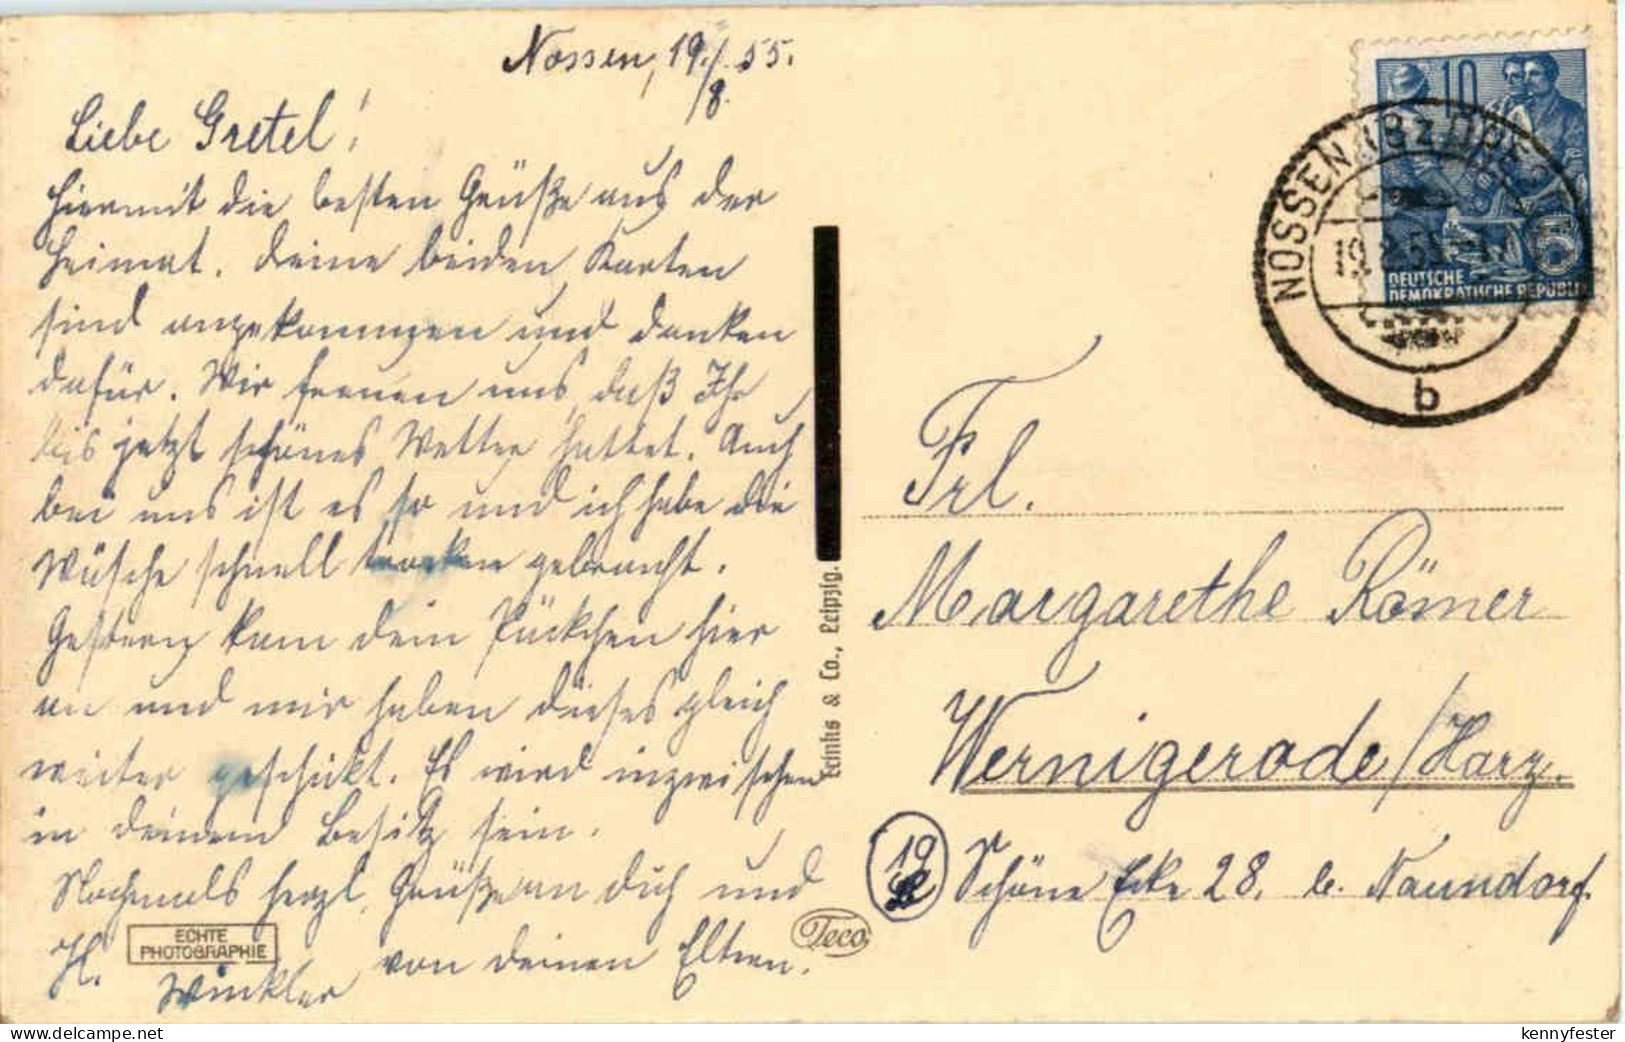 Nossen, 19./8. 55.
Liebe Gretel!
Hiermit die besten Grüße aus der
Heimat. Deine beiden Karten
sind angekommen und danken
dafür. Wir freuen uns, daß Ihr
bis jetzt schönes Wetter hattet. Auch
bei uns ist es so und ich habe die
Wäsche schnell trocken gebracht.
Gestern kam dein Päckchen hier
an und wir haben dieses gleich
weiter geschickt. Es wird inzwischen
in deinem Besitz sein.
Nochmals herzl. Grüße an dich und
H. Winkler von deinen Eltern.
ECHTE
PHOTOGRAPHIE
Teco
& Co., Leipzig.
10
DEUTSCHE
DEMOKRATISCHE REPUBLIK
5
NOSSEN (BZ DRESDEN)
19.8.55
b
Frl.
Margarethe Römer
Wernigerode/Harz.
19
Schöne Ecke 28. b. Naundorf.
delcampe.net
kennyfester